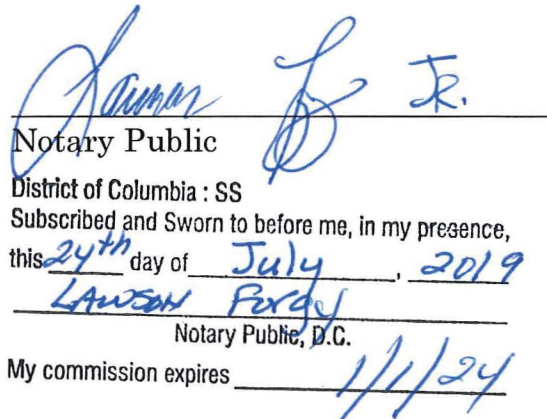 Jr.
Notary Public
District of Columbia : SS
Subscribed and Sworn to before me, in my presence,
this 24th day of July, 2019
LAWSON Forgy
Notary Public, D.C.
My commission expires 1/1/24